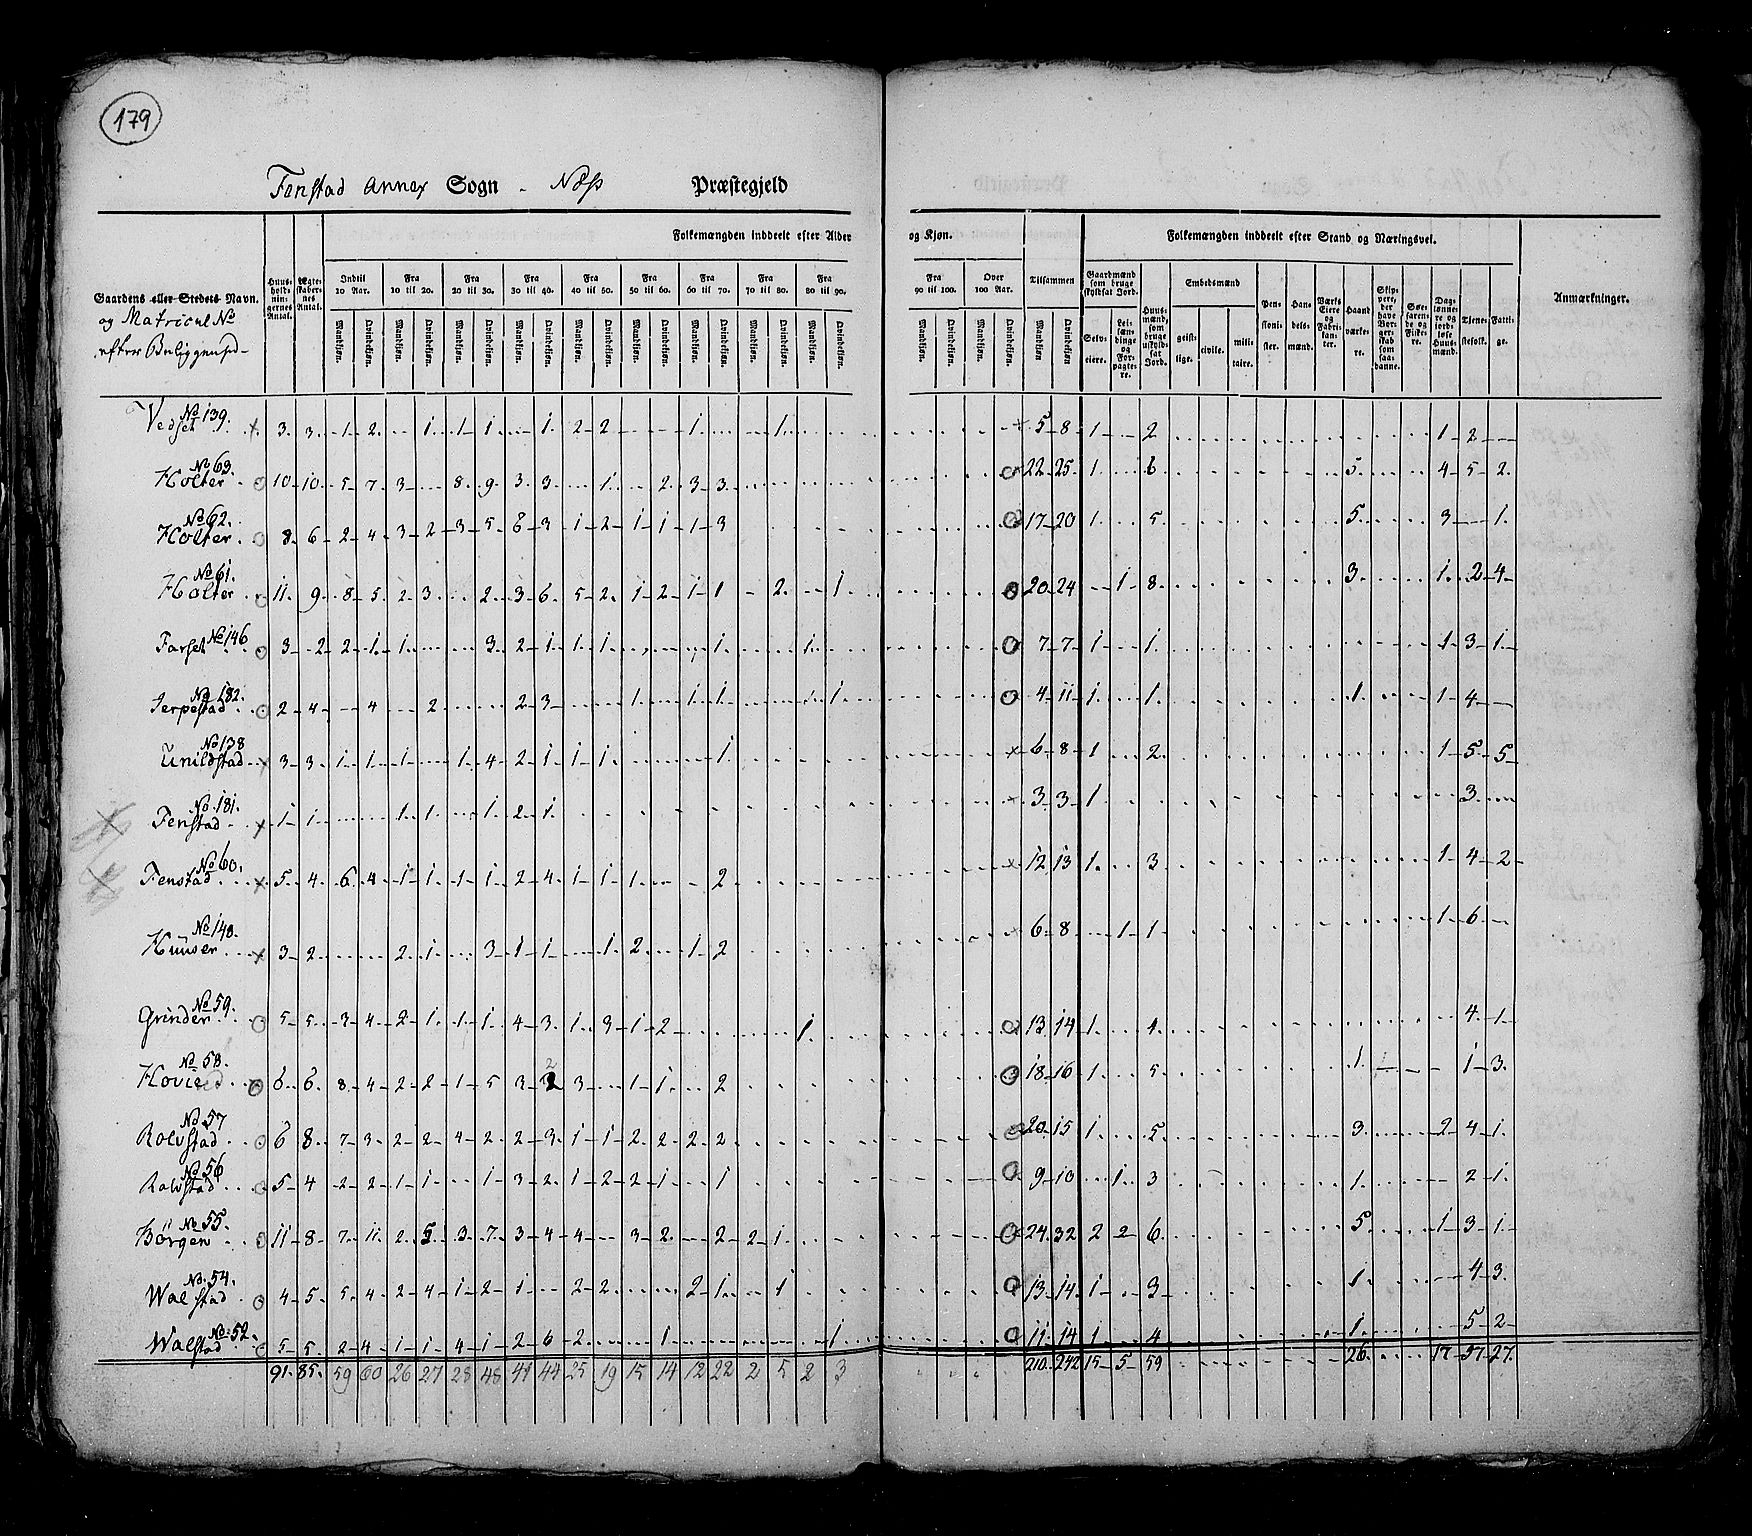 179
Fenstad Annex Sogn - Næss Præstegjeld
Gaardens eller Stedets Navn.
og Matricul No
efter Beliggenhed-
Huus-holdnin-gernes Antal.
Ægte-skaber-nes Antal.
Folkemængden inddeelt efter Alder og Kjøn.
Indtil 10 Aar.
Fra 10 til 20.
Fra 20 til 30.
Fra 30 til 40.
Fra 40 til 50.
Fra 50 til 60.
Fra 60 til 70.
Fra 70 til 80.
Fra 80 til 90.
Fra 90 til 100.
Over 100 Aar.
Tilsammen
Mandkjøn. Qvindekjøn.
Folkemængden inddeelt efter Stand og Næringsvei.
Gaardmænd som bruge skyldsat Jord.
Selv-eiere.
Lei-lændinge og For-pagtere.
Huus-mænd, som bruge uskyldsat Jord.
Embedsmænd
geist-lige. civile. mili-taire.
Pen-sioni-ster.
Han-dels-mænd.
Værks Eiere og Fabri-kan-ter.
Haand værke-re.
Skip-pere, der have Bor-ger-skab som saa-danne.
Søe-faren-de og Fiske-re.
Dag-lønne-re og jord-løse Huus-mænd.
Tjene-stefolk.
Fatti-ge.
Anmærkninger.
Vedset No 139. x 3. 3. 1. 2. 1. 1 1. 1. 2 2 1. 1. x 5 8 1 2 1 2
Holter No 63. 10 10 5 7 3 8. 9. 3. 3. 1. 2. 3 3 22 25. 1. 6. 5. 4 5 2.
Holter No 62. 8. 6 2 4 3 2 3 5. 6 3 1 2 1 1 1 3 17 20 1. 5. 5. 3 1.
Holter No 61. 11. 9. 8 5. 2 3. 2. 3. 6. 5 2. 1 2 1 1 2. 1 20 24 1. 8. 3. 1. 2 4
Farset No 146 3 2 2 1. 1. 3. 2 1. 1. 1. 1. 1. 7 7 1 1. 1 3 1.
Jerpestad No 182. 2 4 4 2 2 3 1. 1 1. 1. 1 4 11 1. 1. 1. 1 4
Unildstad No 138 x 3 3 1. 1. 1 1. 4 2 1. 1. 1. 1. x 6 8 1 2. 1 5 5
Fenstad No 181. x 1 1 1. 1. 1. 2. 1. 3 3 1 3.
Fenstad No 60. x 5. 4. 6. 4 1 1. 1 1. 2 4. 1 1 1. 2 x 12 13 1. 3 1 4 2
Huuser No 140. x 3 2 2. 1. 3. 1 1. 1. 2 1 2 6 8 1 1 1 6
Grinder No 59. 5 5. 3 4 2 1. 1. 1. 4 3. 1. 3 1 2 1. 13. 14 1. 4. 4. 1
Hovie No 58. 6. 6. 8. 4 2 2 1 5 3 2 3 1 1. 2 18 16 1. 5. 1. 1 3.
Rolvstad No 57 6 8. 7 3. 2 2. 4 2. 2 3. 1 1. 2. 2. 2 2 20. 15 1. 5. 3. 2 4 1.
Rolvstad No 56 5 4 2 2. 1 1 1 3 2. 1 2 2 1. 1 9 10 1. 3 1. 2 1.
Börgen No 55. 11 8 7. 11. 2. 5. 3. 7. 3 4 4 3 2. 2 2 1. 24. 32 2 2 6. 5. 1 3 1
Walstad No. 54. 4 5. 5. 4 2 4 1 2 1. 2 2. 2 1. 1 13. 14. 1 3 1. 4 3.
Walstad No. 52. 5 5. 2 4. 1 1. 4 1 2 6 2. 1 1 11. 14 1 4 1. 5. 2
91. 85. 59 60 26 27 28 48 41 44 25 19 15 14 12 22 2 5 2 3 210. 242 15 5 59 26. 17 57 27.